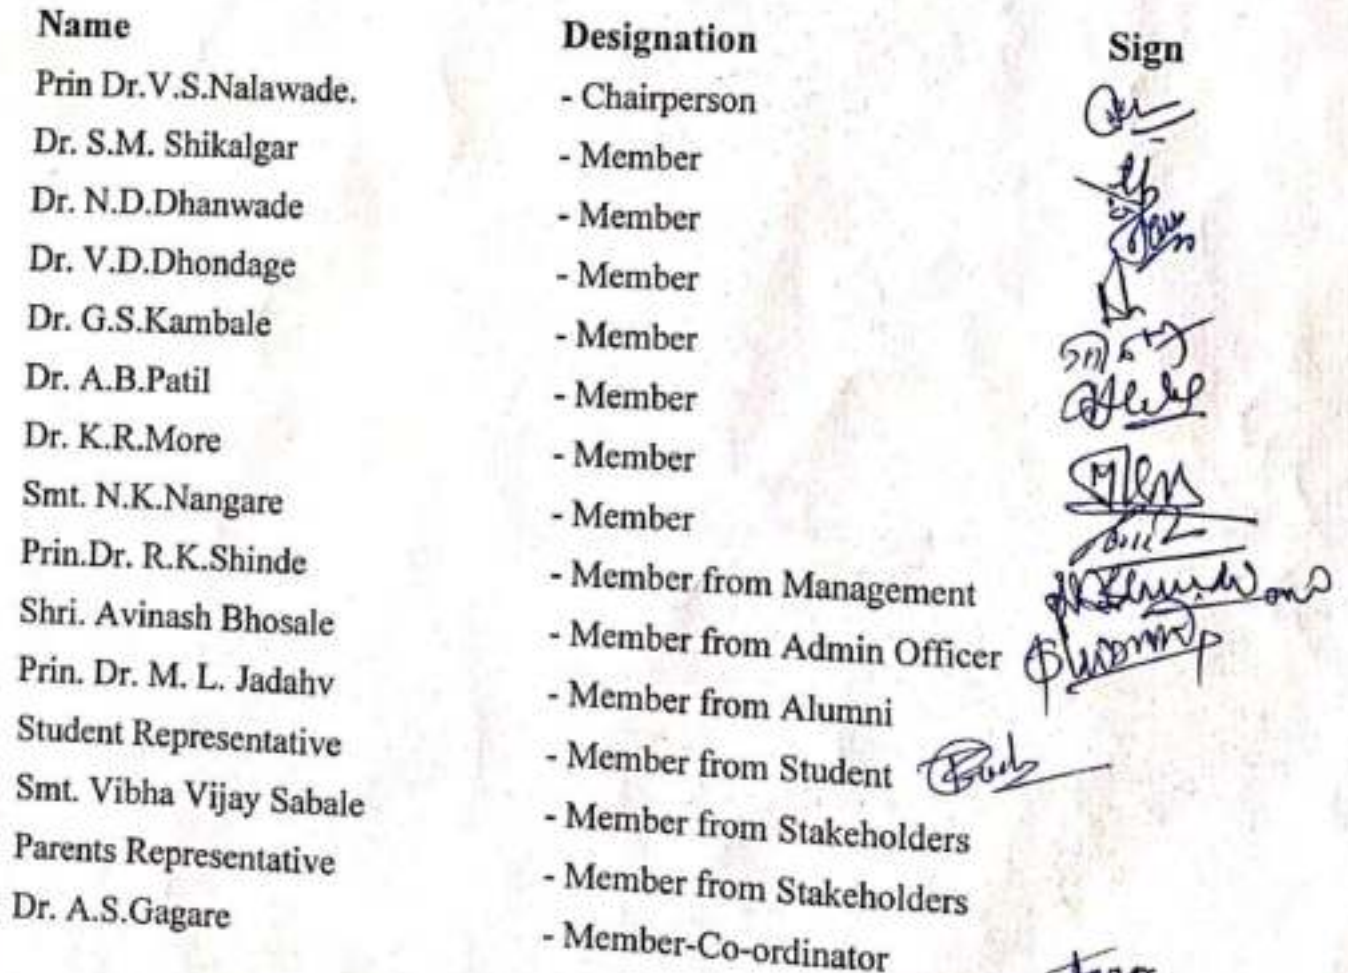 Name Designation Sign
Prin Dr.V.S.Nalawade. - Chairperson
Dr. S.M. Shikalgar - Member
Dr. N.D.Dhanwade - Member
Dr. V.D.Dhondage - Member
Dr. G.S.Kambale - Member
Dr. A.B.Patil - Member
Dr. K.R.More - Member
Smt. N.K.Nangare - Member
Prin.Dr. R.K.Shinde - Member from Management
Shri. Avinash Bhosale - Member from Admin Officer
Prin. Dr. M. L. Jadahv - Member from Alumni
Student Representative - Member from Student
Smt. Vibha Vijay Sabale - Member from Stakeholders
Parents Representative - Member from Stakeholders
Dr. A.S.Gagare - Member-Co-ordinator